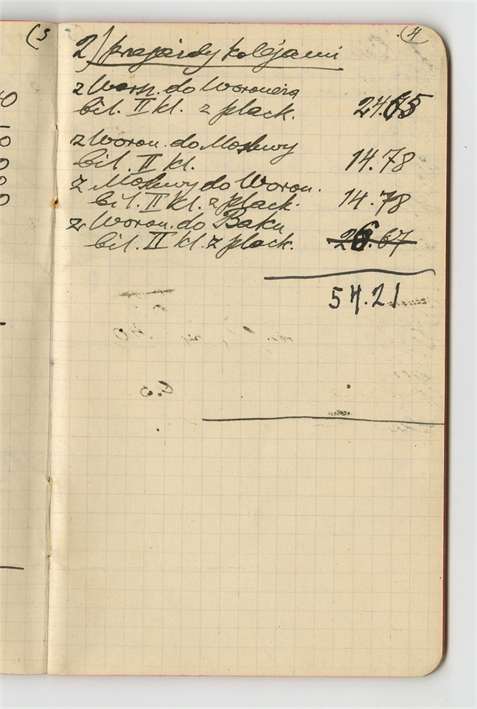 (3
(4)
2) przejazdy kolejami
z Warsz. do Woroneża
bil. II kl. z plack. 24.65
z Woron. do Moskwy
bil. II kl. 14.78
z Moskwy do Woron.
bil. II kl. z plack. 14.78
z Woron. do Baku
bil. II kl. z plack. 26.67
54.21